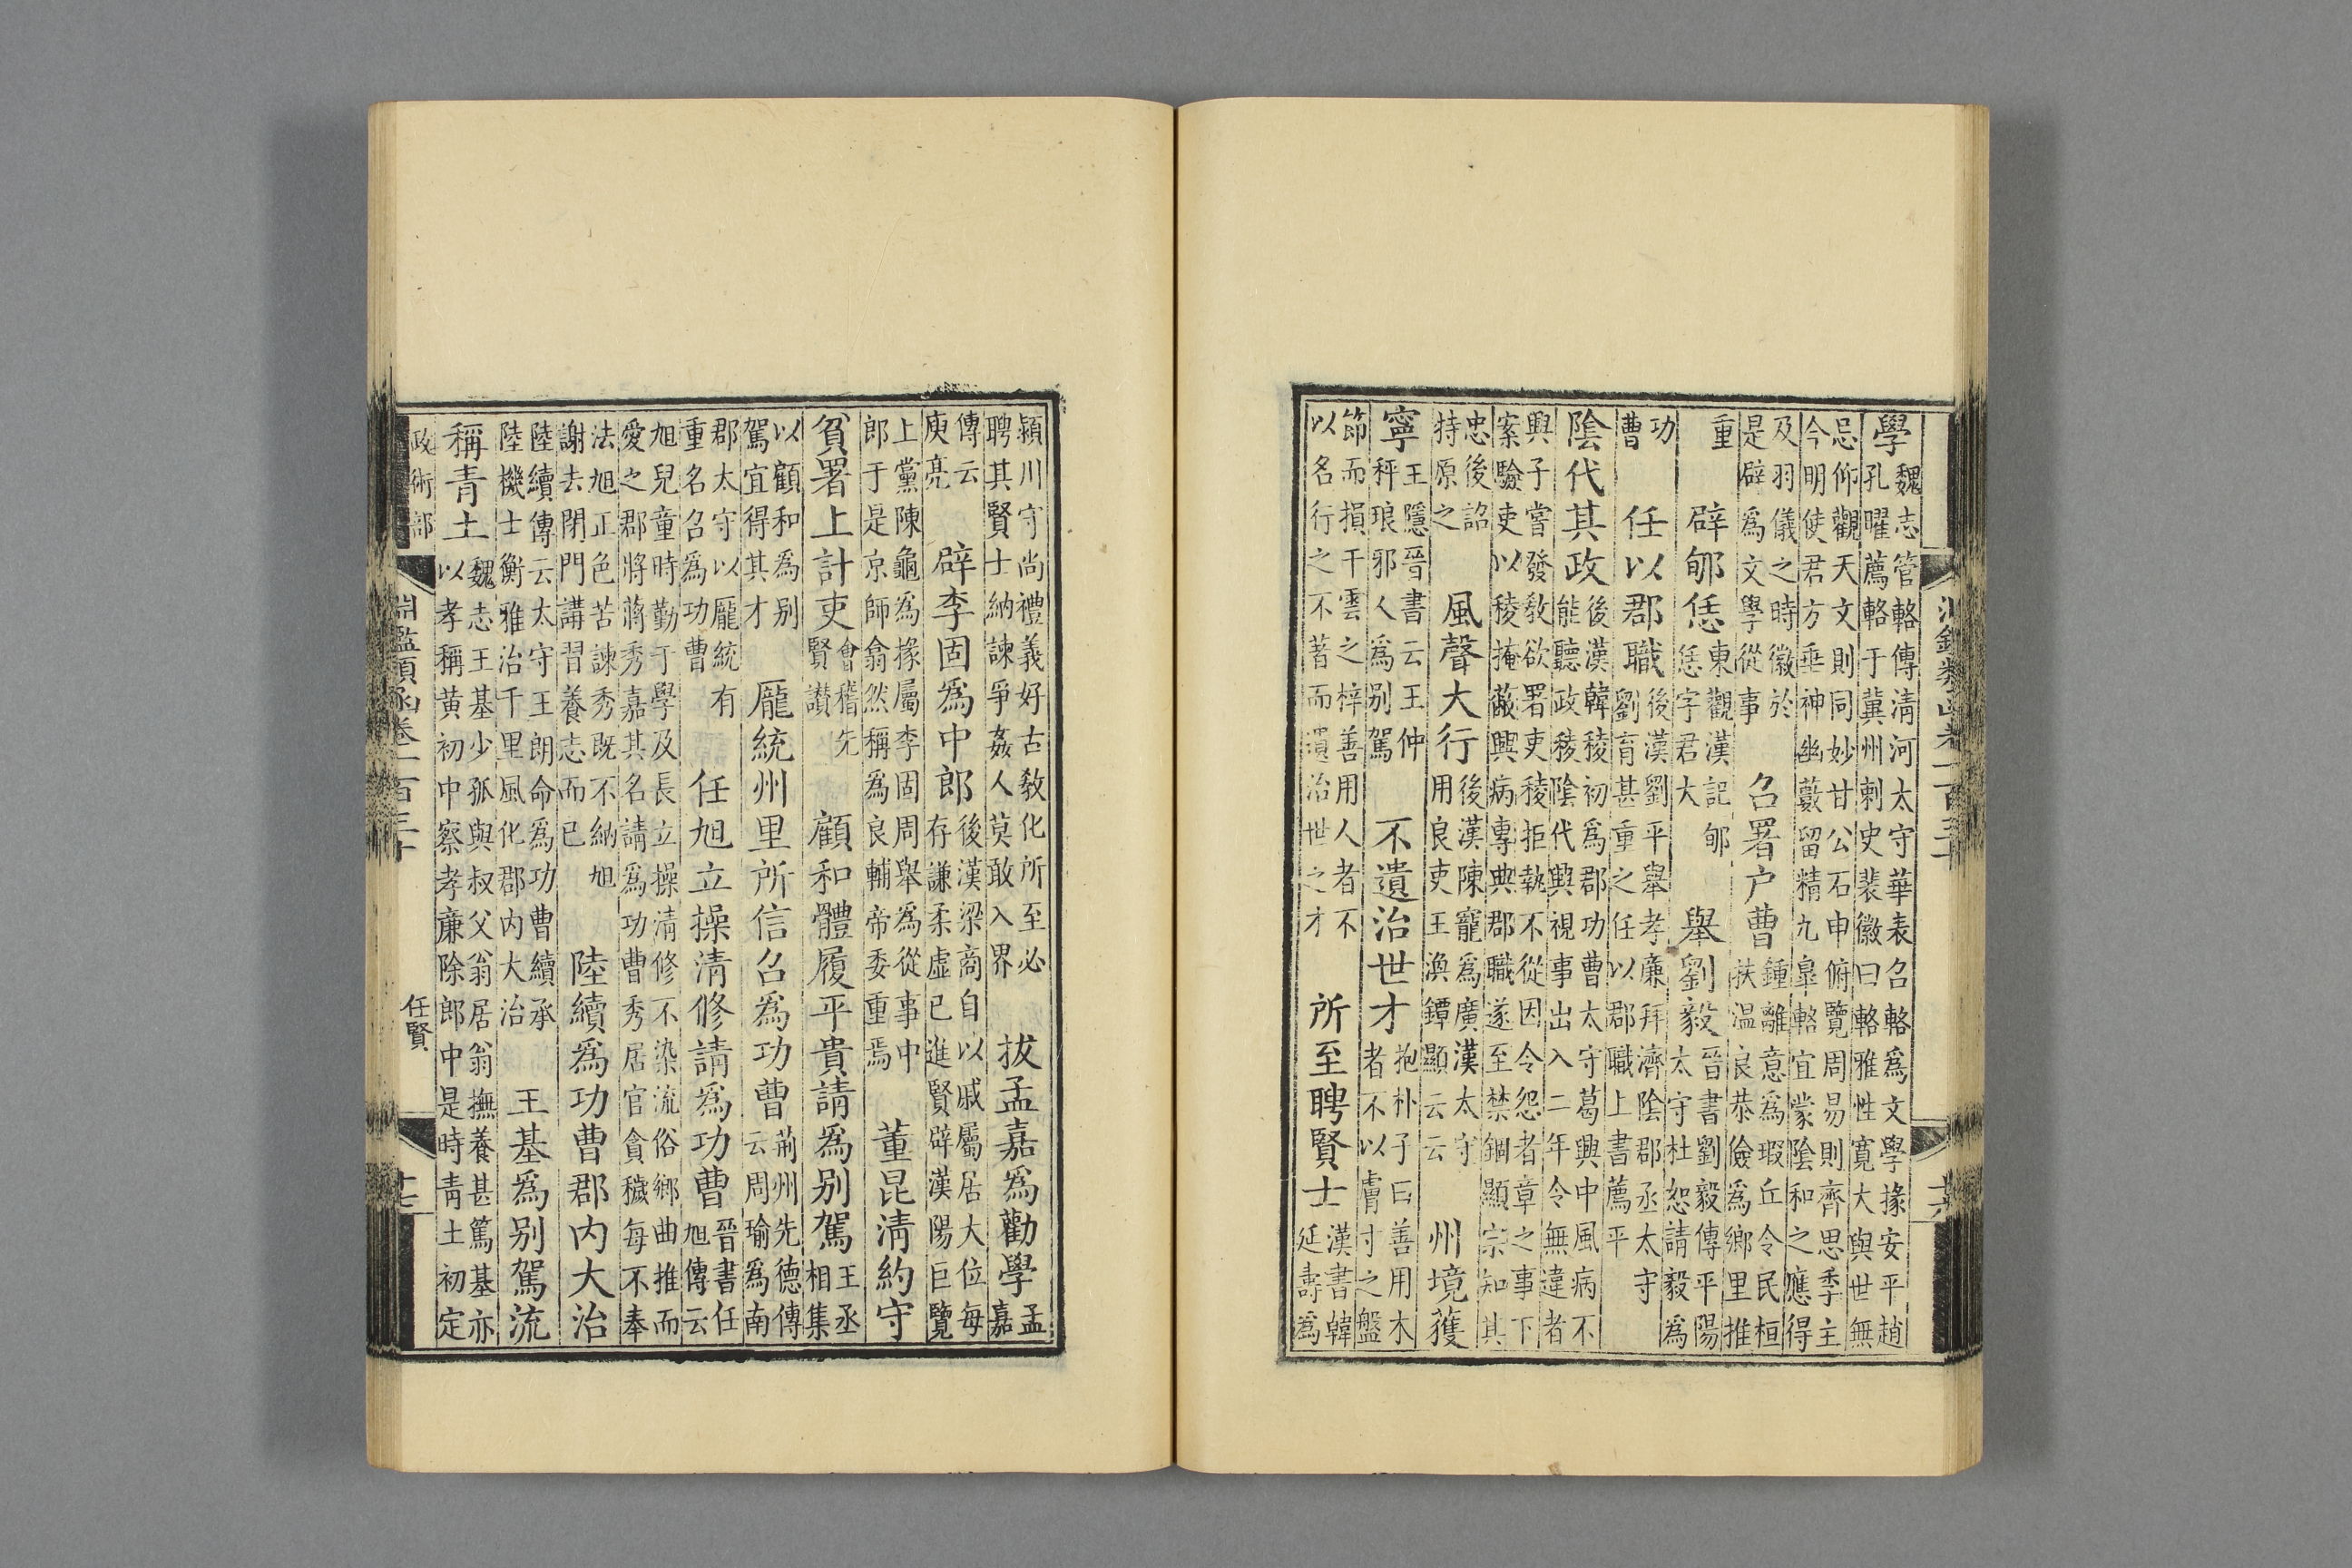 學
魏志管輅傳清河太守華表召輅爲文學掾安平趙
孔曜薦輅于冀州刺史裴徽曰輅雅性寛大與世無
忌仰觀天文則同妙甘公石申俯覽周易則齊思季主
今明使君方垂神幽藪留精九臯輅宜蒙陰和之應得
及羽儀之時徽於
是辟爲文學從事
召署户曹
鍾離意爲瑕丘令民桓
扶温良恭儉爲鄉里推
重
辟郇恁
東觀漢記郇
恁字君大
舉劉毅
晉書劉毅傳平陽
太守杜恕請毅爲
功
曹
任以郡職
後漢劉平舉孝廉拜濟陰郡丞太守
劉育甚重之任以郡職上書薦平
陰代其政
後漢韓稜初爲郡功曹太守葛興中風病不
能聽政稜陰代興視事出入二年令無違者
興子嘗發敎欲署吏稜拒執不從因令怨者章之事下
案驗吏以稜掩蔽興病專典郡職遂至禁錮顯宗知其
忠後詔
特原之
風聲大行
後漢陳寵爲廣漢太守
用良吏王渙鐔顯云云
州境獲
寧
王隱晉書云王仲
秤琅邪人爲别駕
不遺治世才
抱朴子曰善用木
者不以膚寸之盤
節而損干雲之梓善用人者不
以名行之不著而遺治世之才
所至聘賢士
漢書韓
延壽爲
潁川守尚禮義好古敎化所至必
聘其賢士納諫爭姦人莫敢入界
拔孟嘉爲勸學
孟
嘉
傳云
庾亮
辟李固爲中郎
後漢梁商自以戚屬居大位每
存謙柔虚已進賢辟漢陽巨覽
上黨陳龜爲掾屬李固周舉爲從事中
郎于是京師翕然稱爲良輔帝委重焉
董昆淸約守
貧署上計吏
會稽先
賢讃
顧和體履平貴請爲别駕
王丞
相集
以顧和爲别
駕宜得其才
龎統州里所信召爲功曹
荊州先德傳
云周瑜爲南
郡太守以龎統有
重名召爲功曹
任旭立操淸修請爲功曹
晉書任
旭傳云
旭兒童時勤于學及長立操淸修不染流俗鄉曲推而
愛之郡將蔣秀嘉其名請爲功曹秀居官貪穢每不奉
法旭正色苦諫秀既不納旭
謝去閉門講習養志而已
陸續爲功曹郡内大治
陸續傳云太守王朗命爲功曹續承
陸機士衡雅治千里風化郡内大治
王基爲别駕流
稱青土
魏志王基少孤與叔父翁居翁撫養甚篤基亦
以孝稱黄初中察孝廉除郎中是時靑土初定
政術部
淵鑑類函卷一百三十
任賢